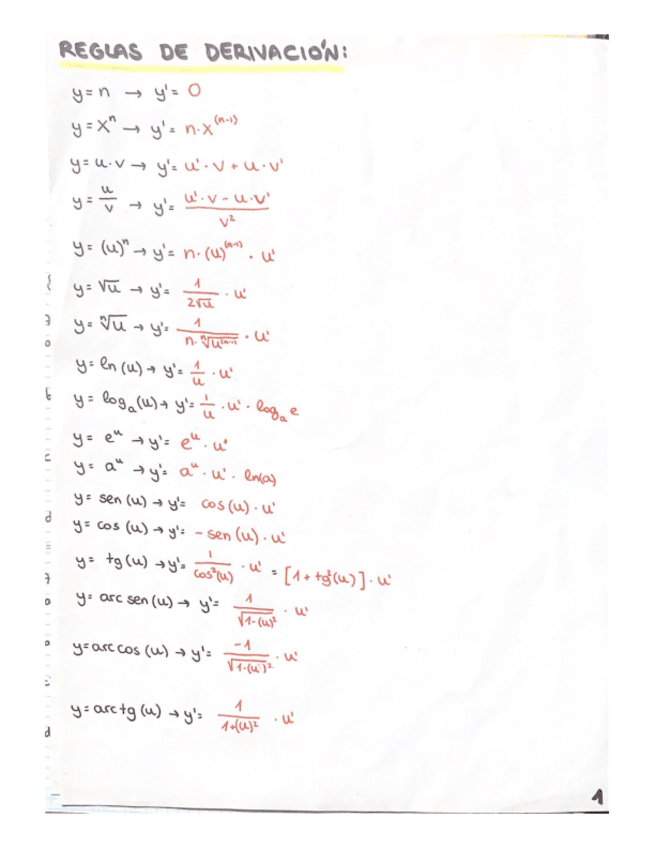 REGLAS DE DERIVACIÓN:
y = n → y' = 0
y = xⁿ → y' = n·x⁽ⁿ⁻¹⁾
y = u·v → y' = u'·v + u·v'
y = u/v → y' = (u'·v - u·v')/v²
y = (u)ⁿ → y' = n·(u)⁽ⁿ⁻¹⁾ · u'
y = √u → y' = 1/(2√u) · u'
y = ⁿ√u → y' = 1/(n·ⁿ√u⁽ⁿ⁻¹⁾) · u'
y = ln (u) → y' = 1/u · u'
y = logₐ(u) → y' = 1/u · u' · logₐ e
y = eᵘ → y' = eᵘ · u'
y = aᵘ → y' = aᵘ · u' · ln(a)
y = sen (u) → y' = cos (u) · u'
y = cos (u) → y' = - sen (u) · u'
y = tg (u) → y' = 1/cos²(u) · u' = [1 + tg²(u)] · u'
y = arc sen (u) → y' = 1/√(1-(u)²) · u'
y = arc cos (u) → y' = -1/√(1-(u)²) · u'
y = arc tg (u) → y' = 1/(1+(u)²) · u'
1